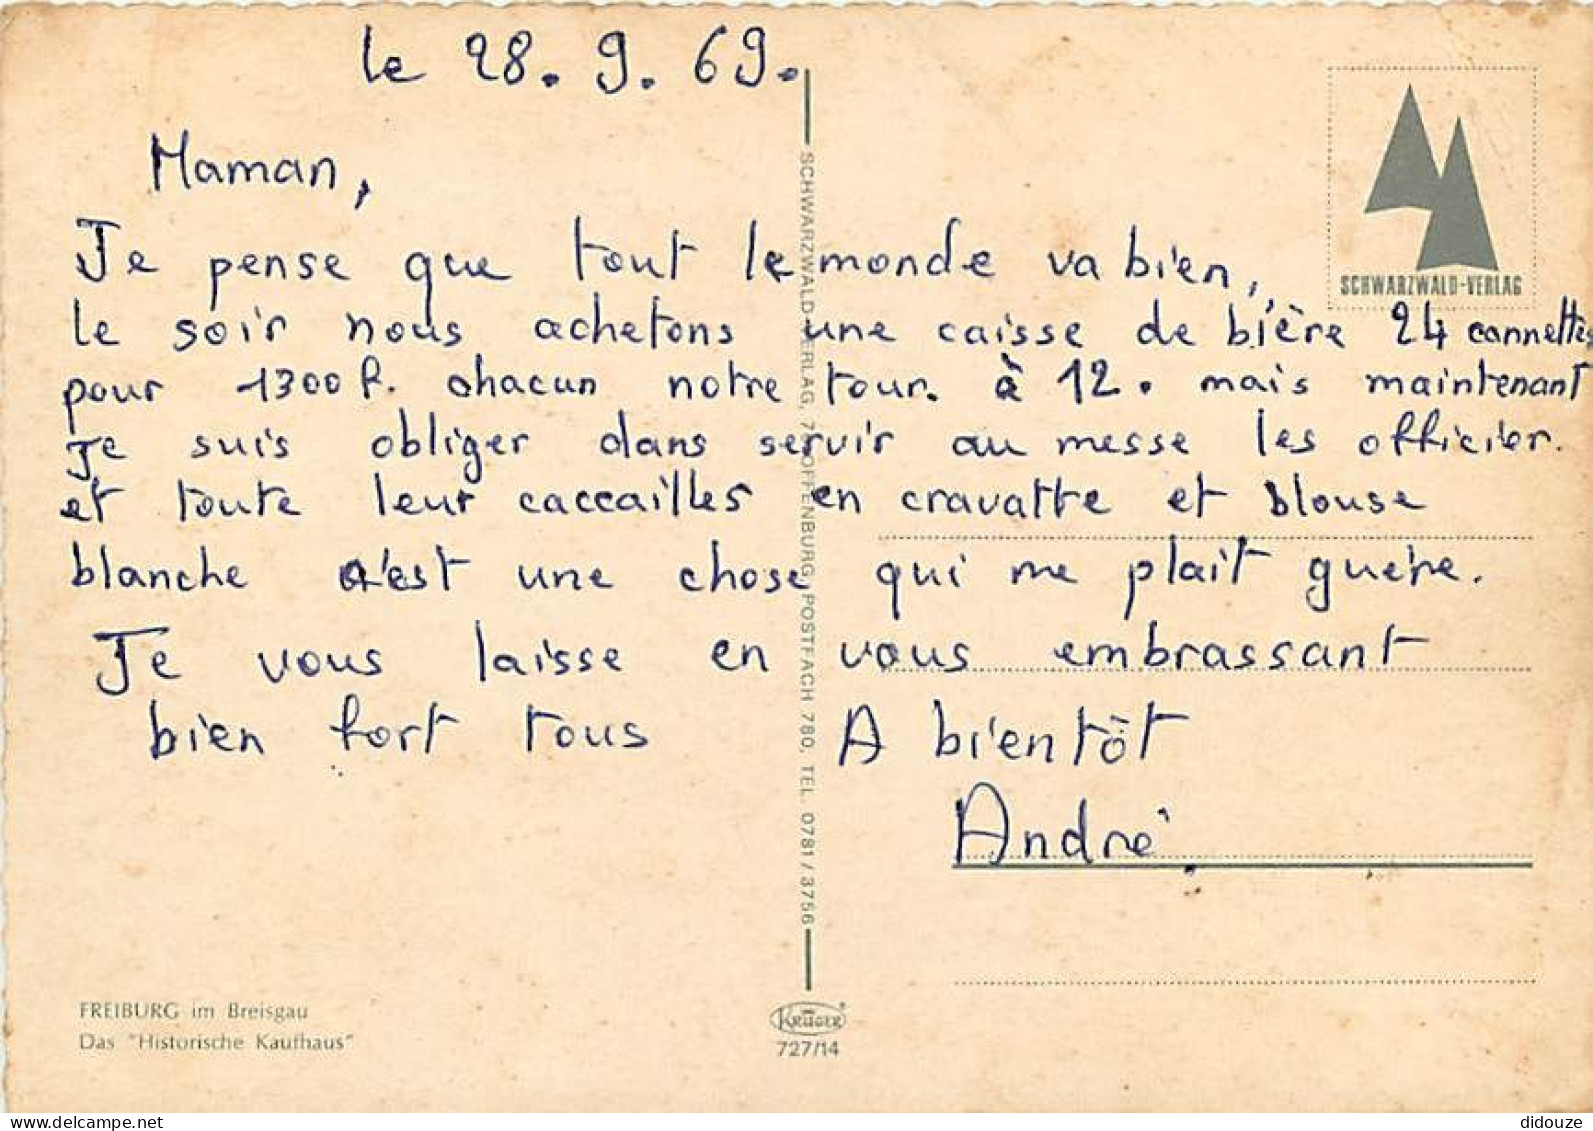 le 28. 9. 69.
Maman,
Je pense que tout le monde va bien,
le soir nous achetons une caisse de bière 24 cannettes
pour 1300 f. chacun notre tour. à 12. mais maintenant
je suis obliger dans servir au messe les officier.
et toute leur caccailles en cravatte et blouse
blanche c'est une chose qui me plait guère.
Je vous laisse en vous embrassant
bien fort tous A bientôt
André
SCHWARZWALD-VERLAG
SCHWARZWALD-VERLAG, 76 OFFENBURG, POSTFACH 780, TEL. 0781/3756
FREIBURG im Breisgau
Das "Historische Kaufhaus"
KRÜGER
727/14
delcampe.net
didouze